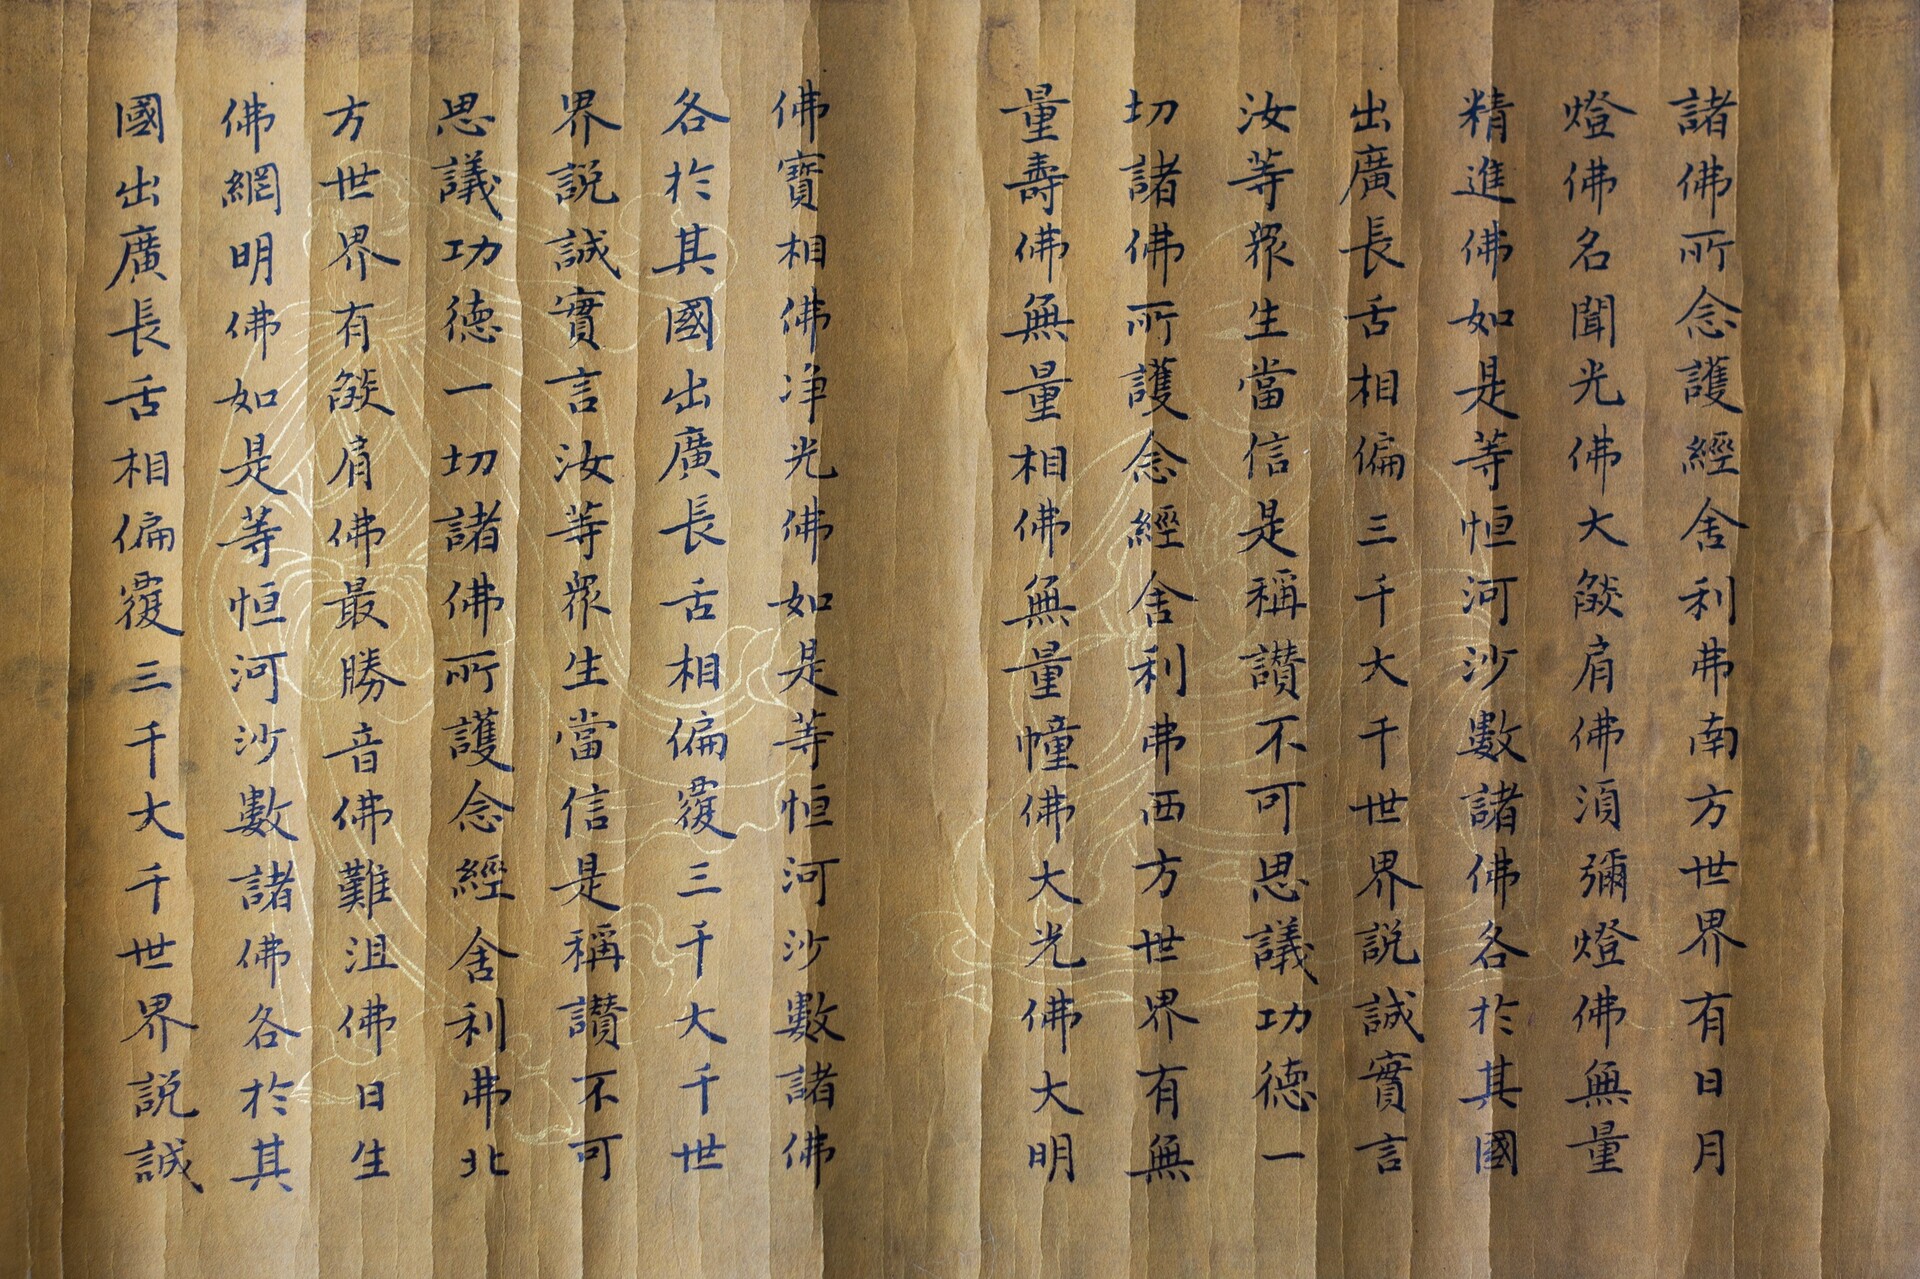 諸佛所念護經舍利弗南方世界有日月
燈佛名聞光佛大燄肩佛須彌燈佛無量
精進佛如是等恒河沙數諸佛各於其國
出廣長舌相偏三千大千世界説誠實言
汝等眾生當信是稱讃不可思議功德一
切諸佛所護念經舍利弗西方世界有無
量壽佛無量相佛無量幢佛大光佛大明
佛寶相佛净光佛如是等恒河沙數諸佛
各於其國出廣長舌相偏覆三千大千世
界説誠實言汝等眾生當信是稱讃不可
思議功德一切諸佛所護念經舍利弗北
方世界有燄肩佛最勝音佛難沮佛日生
佛網明佛如是等恒河沙數諸佛各於其
國出廣長舌相偏覆三千大千世界説誠